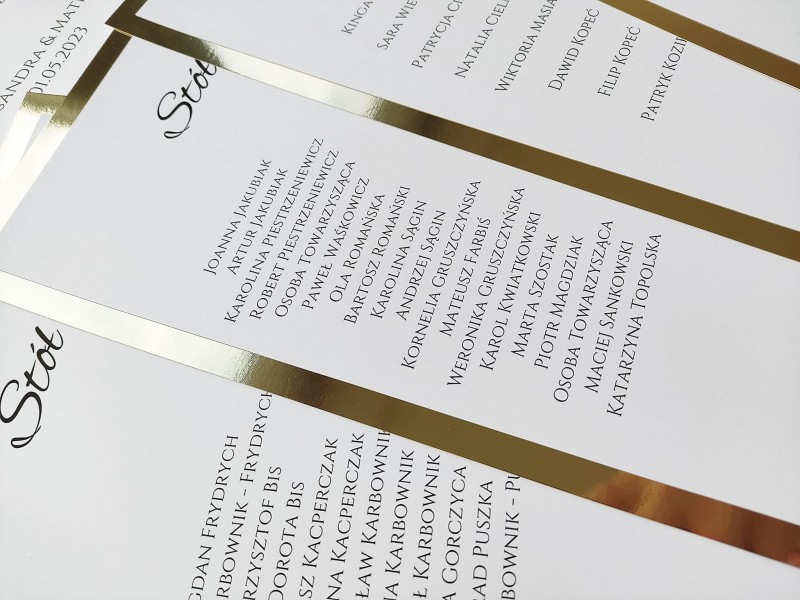 SANDRA & MAT
01.05.2023
KINGA
SARA WIE
PATRYCJA CI
NATALIA CIEL
WIKTORIA MASIA
DAWID KOPEĆ
FILIP KOPEĆ
PATRYK KOZIE
Stół
JOANNA JAKUBIAK
ARTUR JAKUBIAK
KAROLINA PIESTRZENIEWICZ
ROBERT PIESTRZENIEWICZ
OSOBA TOWARZYSZĄCA
PAWEŁ WAŚKOWICZ
OLA ROMAŃSKA
BARTOSZ ROMAŃSKI
KAROLINA SĄGIN
ANDRZEJ SĄGIN
KORNELIA GRUSZCZYŃSKA
MATEUSZ FARBIŚ
WERONIKA GRUSZCZYŃSKA
KAROL KWIATKOWSKI
MARTA SZOSTAK
PIOTR MAGDZIAK
OSOBA TOWARZYSZĄCA
MACIEJ SANKOWSKI
KATARZYNA TOPOLSKA
Stół
GDAN FRYDRYCH
RBOWNIK - FRYDRYCH
RZYSZTOF BIS
DOROTA BIS
SZ KACPERCZAK
NA KACPERCZAK
ŁAW KARBOWNIK
IA KARBOWNIK
Ł KARBOWNIK
A GORCZYCA
RAD PUSZKA
BOWNIK - PU